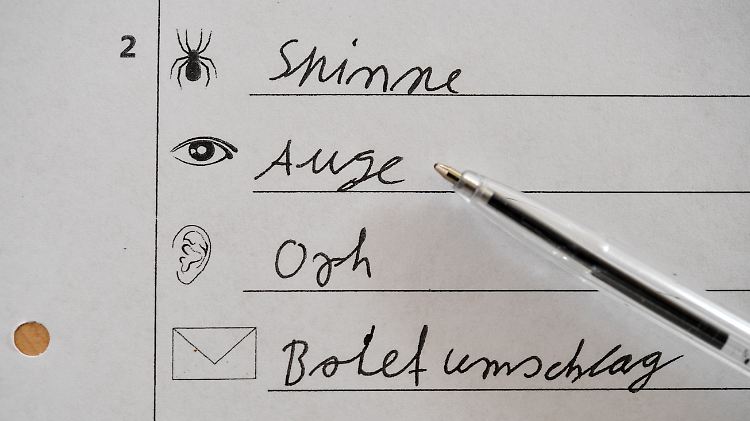 2
Shinne
Auge
Orh
Brief umschlag